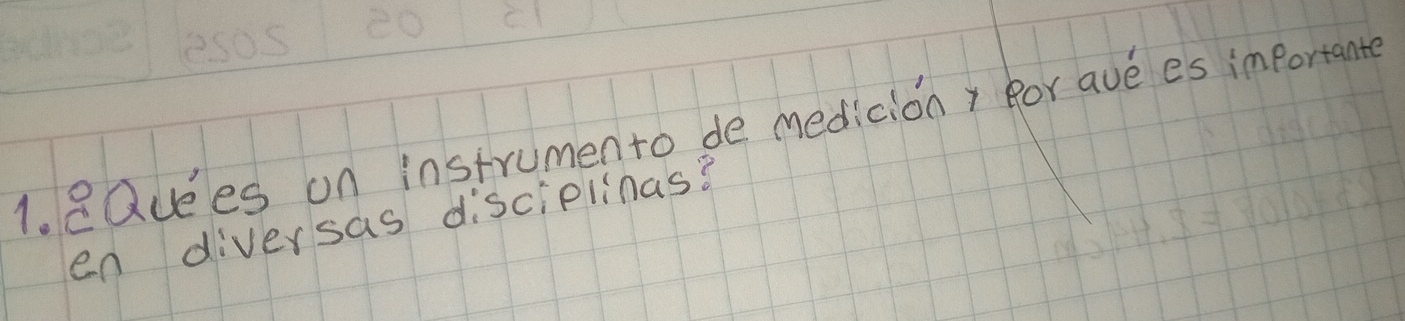 1. ¿Qué es un instrumento de medición y por qué es importante
en diversas disciplinas?